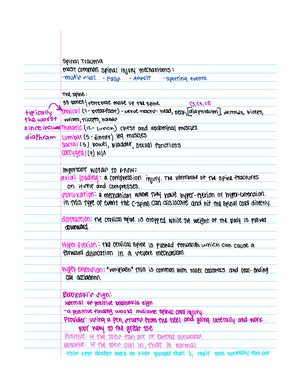 Spinal Trauma
most common spinal injury mechanisms:
- motor veh - Falls - assault - sporting events
The spine:
33 bones/vertebrae make up the spine. C3, C4, C5
typically the worst since includes diaphragm
Cervical (7 - breakfast) - head, neck, [diaphragm] deltoids, biceps,
wrists, triceps, hands
Thoracic (12 - lunch) chest and abdominal muscles
Lumbar (5 - dinner) leg muscles
Sacral (5) bowel, bladder, sexual functions
coccygeal (4) N/A
Important words to know:
axial loading: a compression injury. The vertebrae of the spine
on itself and compresses.
a mechanism where they have hyper-flexion or hyper-extension.
In this type of event the C-spine can dislocate and hit the spinal cord directly.
distraction: the cervical spine is stopped while the weight of the body is pulled
downward.
Hyper flexion: the cervical spine is pushed forwards which can cause a
forward dislocation in a mechanism
Hyper extension: "whiplash" this is common with roller coasters and rear-ending
car accidents.
Babinski's sign:
Normal vs positive babinski's sign
- a positive finding would indicate spinal cord injury.
Provider: using a pen, from the heel and going laterally and work
your way to the great toe.
Positive: if the toes fan out or extend outwards
Negative: if the toes curl in, that is normal